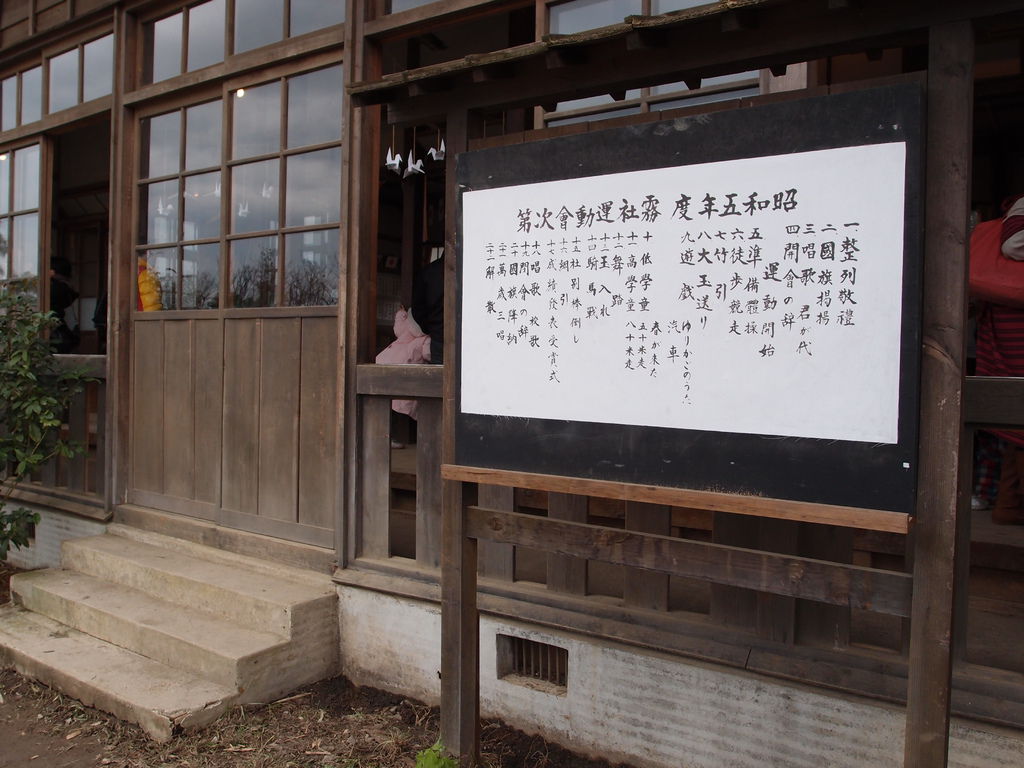 昭和五年度霧社運動會次第
一整列敬禮
二國旗掲揚
三唱歌 君が代
四開會の辞
運動開始
五準備體操
六徒歩競走
七竹引
八大玉送り
九遊戯 ゆりかごのうた
春が来た
汽車
十低學童 五十米走
十一高學童 八十米走
十二舞踏
十三玉入れ
十四騎馬戦
十五社別棒倒し
十六綱引
十七成績發表受賞式
十八唱歌 校歌
十九閉會の辞
二十國旗降納
二十一萬歳三唱
二十二解散